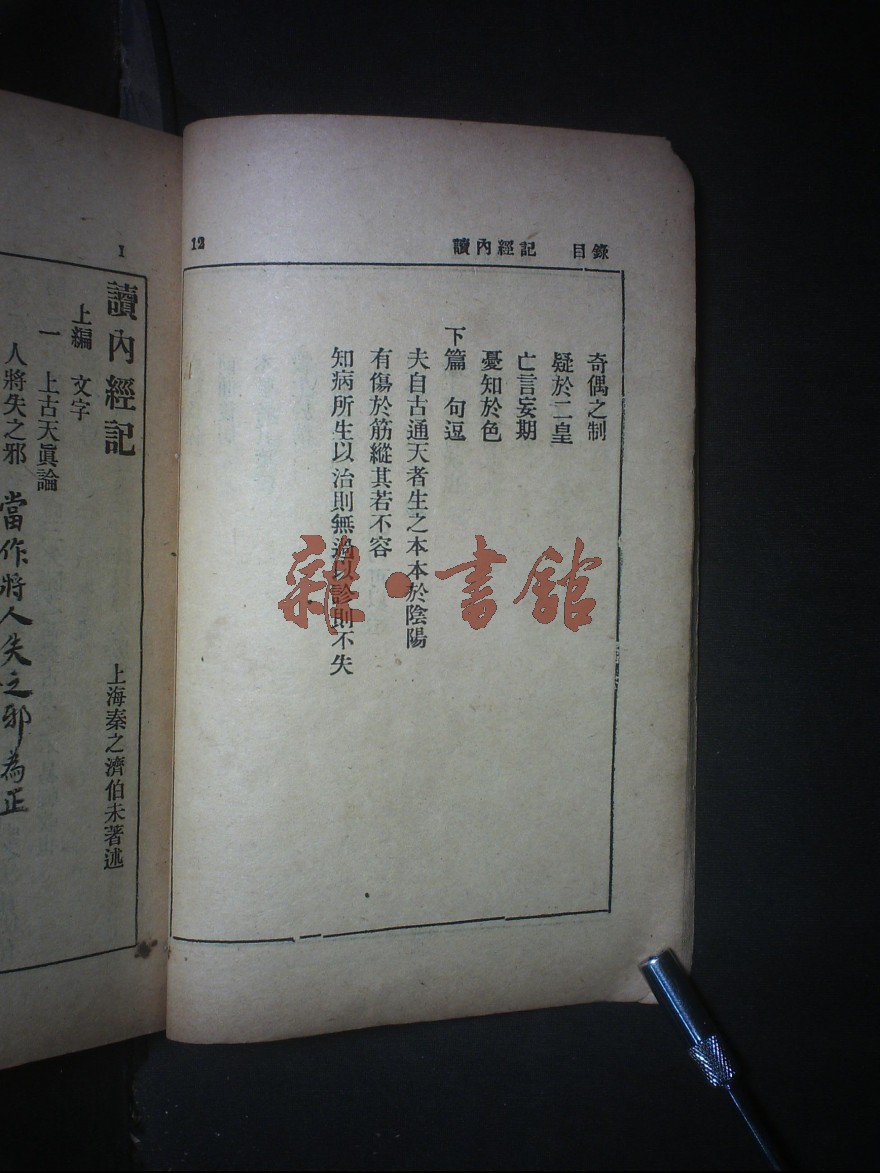 12
讀內經記 目錄
奇偶之制
疑於二皇
亡言妄期
憂知於色
下篇 句逗
夫自古通天者生之本本於陰陽
有傷於筋縱其若不容
知病所生以治則無過以診則不失
雜·書館
1
讀內經記
上海秦之濟伯未著述
上編 文字
一 上古天眞論
人將失之邪 當作將人失之邪為正